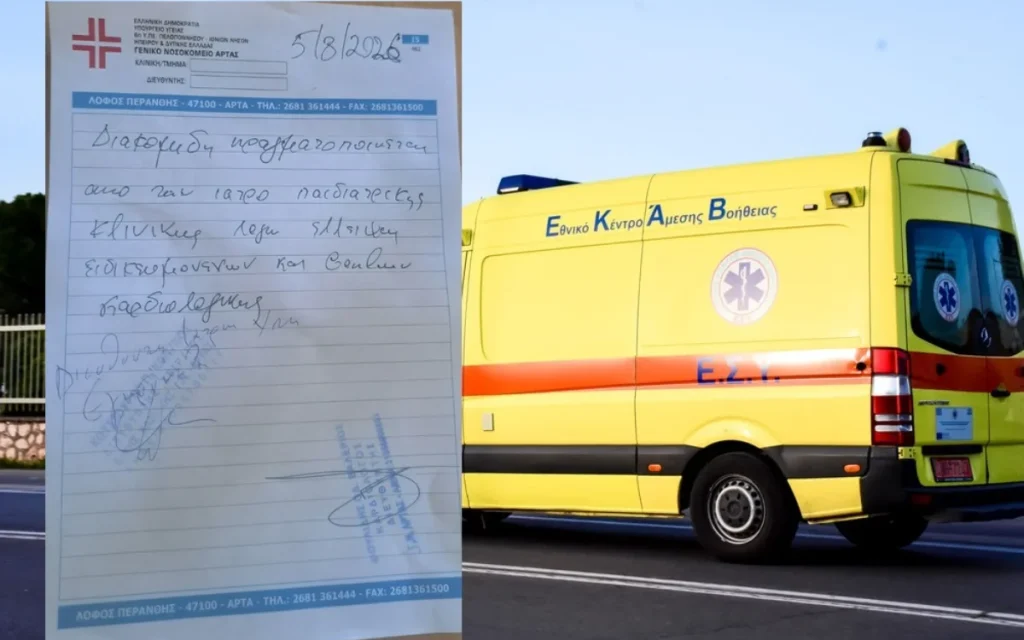 ΕΛΛΗΝΙΚΗ ΔΗΜΟΚΡΑΤΙΑ
ΥΠΟΥΡΓΕΙΟ ΥΓΕΙΑΣ
6η Υ.ΠΕ. ΠΕΛΟΠΟΝΝΗΣΟΥ - ΙΟΝΙΩΝ ΝΗΣΩΝ
ΗΠΕΙΡΟΥ & ΔΥΤΙΚΗΣ ΕΛΛΑΔΑΣ
ΓΕΝΙΚΟ ΝΟΣΟΚΟΜΕΙΟ ΑΡΤΑΣ
ΚΛΙΝΙΚΗ/ΤΜΗΜΑ:
ΔΙΕΥΘΥΝΤΗΣ:
5/8/2026
ΛΟΦΟΣ ΠΕΡΑΝΘΗΣ - 47100 - ΑΡΤΑ - ΤΗΛ.: 2681 361444 - FAX: 2681361500
Διακομιδη πραγματοποιηται
απο τον ιατρο παιδιατρικης
κλινικης λογω ελλειψη
ειδικευομενων και
καρδιολογικης
ΛΟΦΟΣ ΠΕΡΑΝΘΗΣ - 47100 - ΑΡΤΑ - ΤΗΛ.: 2681 361444 - FAX: 2681361500
Εθνικό Κέντρο Άμεσης Βοήθειας
Ε.Σ.Υ.